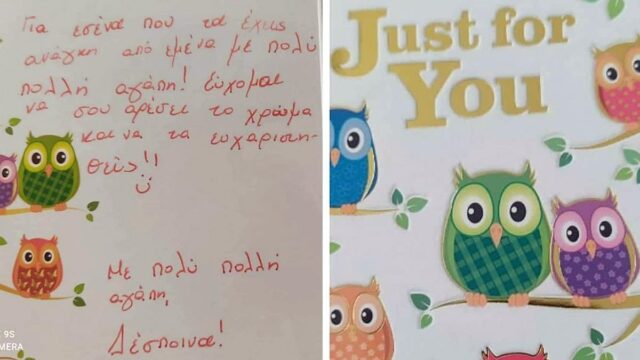 Για εσένα που τα έχεις
ανάγκη από εμένα με πολύ
πολλή αγάπη! Εύχομαι
να σου αρέσει το χρώμα
και να τα ευχαριστη-
θείς!!
Με πολύ πολλή
αγάπη,
Δέσποινα!
9S
MERA
Just for
You